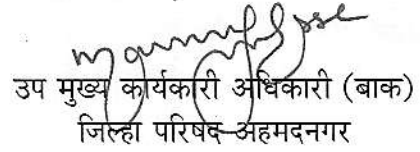 उप मुख्य कार्यकारी अधिकारी (बाक)
जिल्हा परिषद अहमदनगर